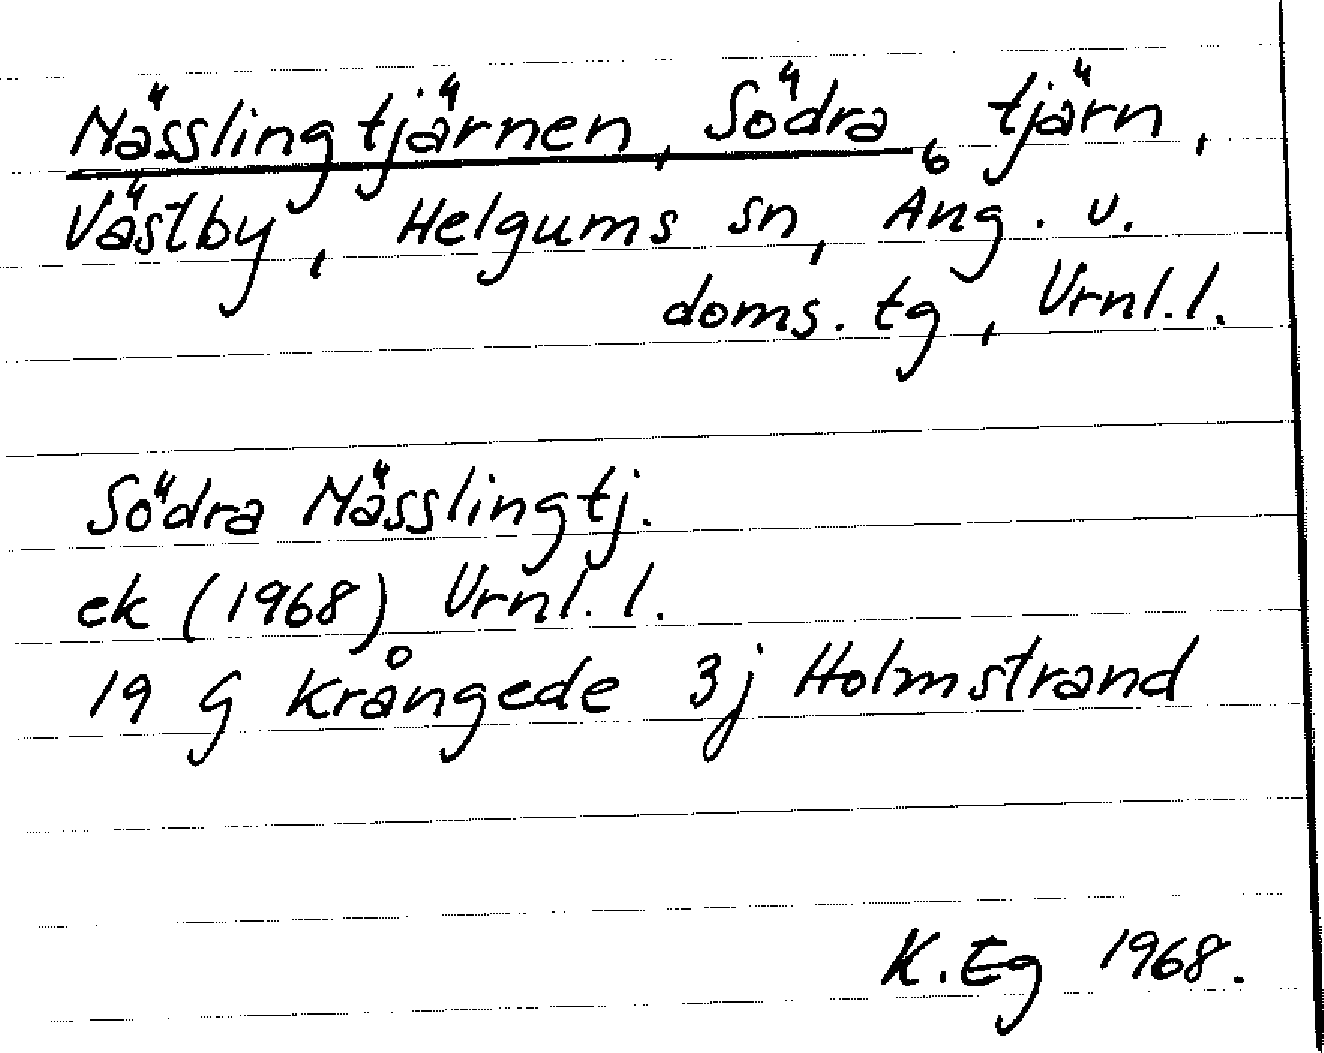 Nässlingtjärnen, Södra, tjärn,
Västby, Helgums sn, Ång. v.
doms. tg, Vrnl. l.
Södra Nässlingtj.
ek (1968) Vrnl. l.
19 G Krångede 3j Holmstrand
K. Eg 1968.